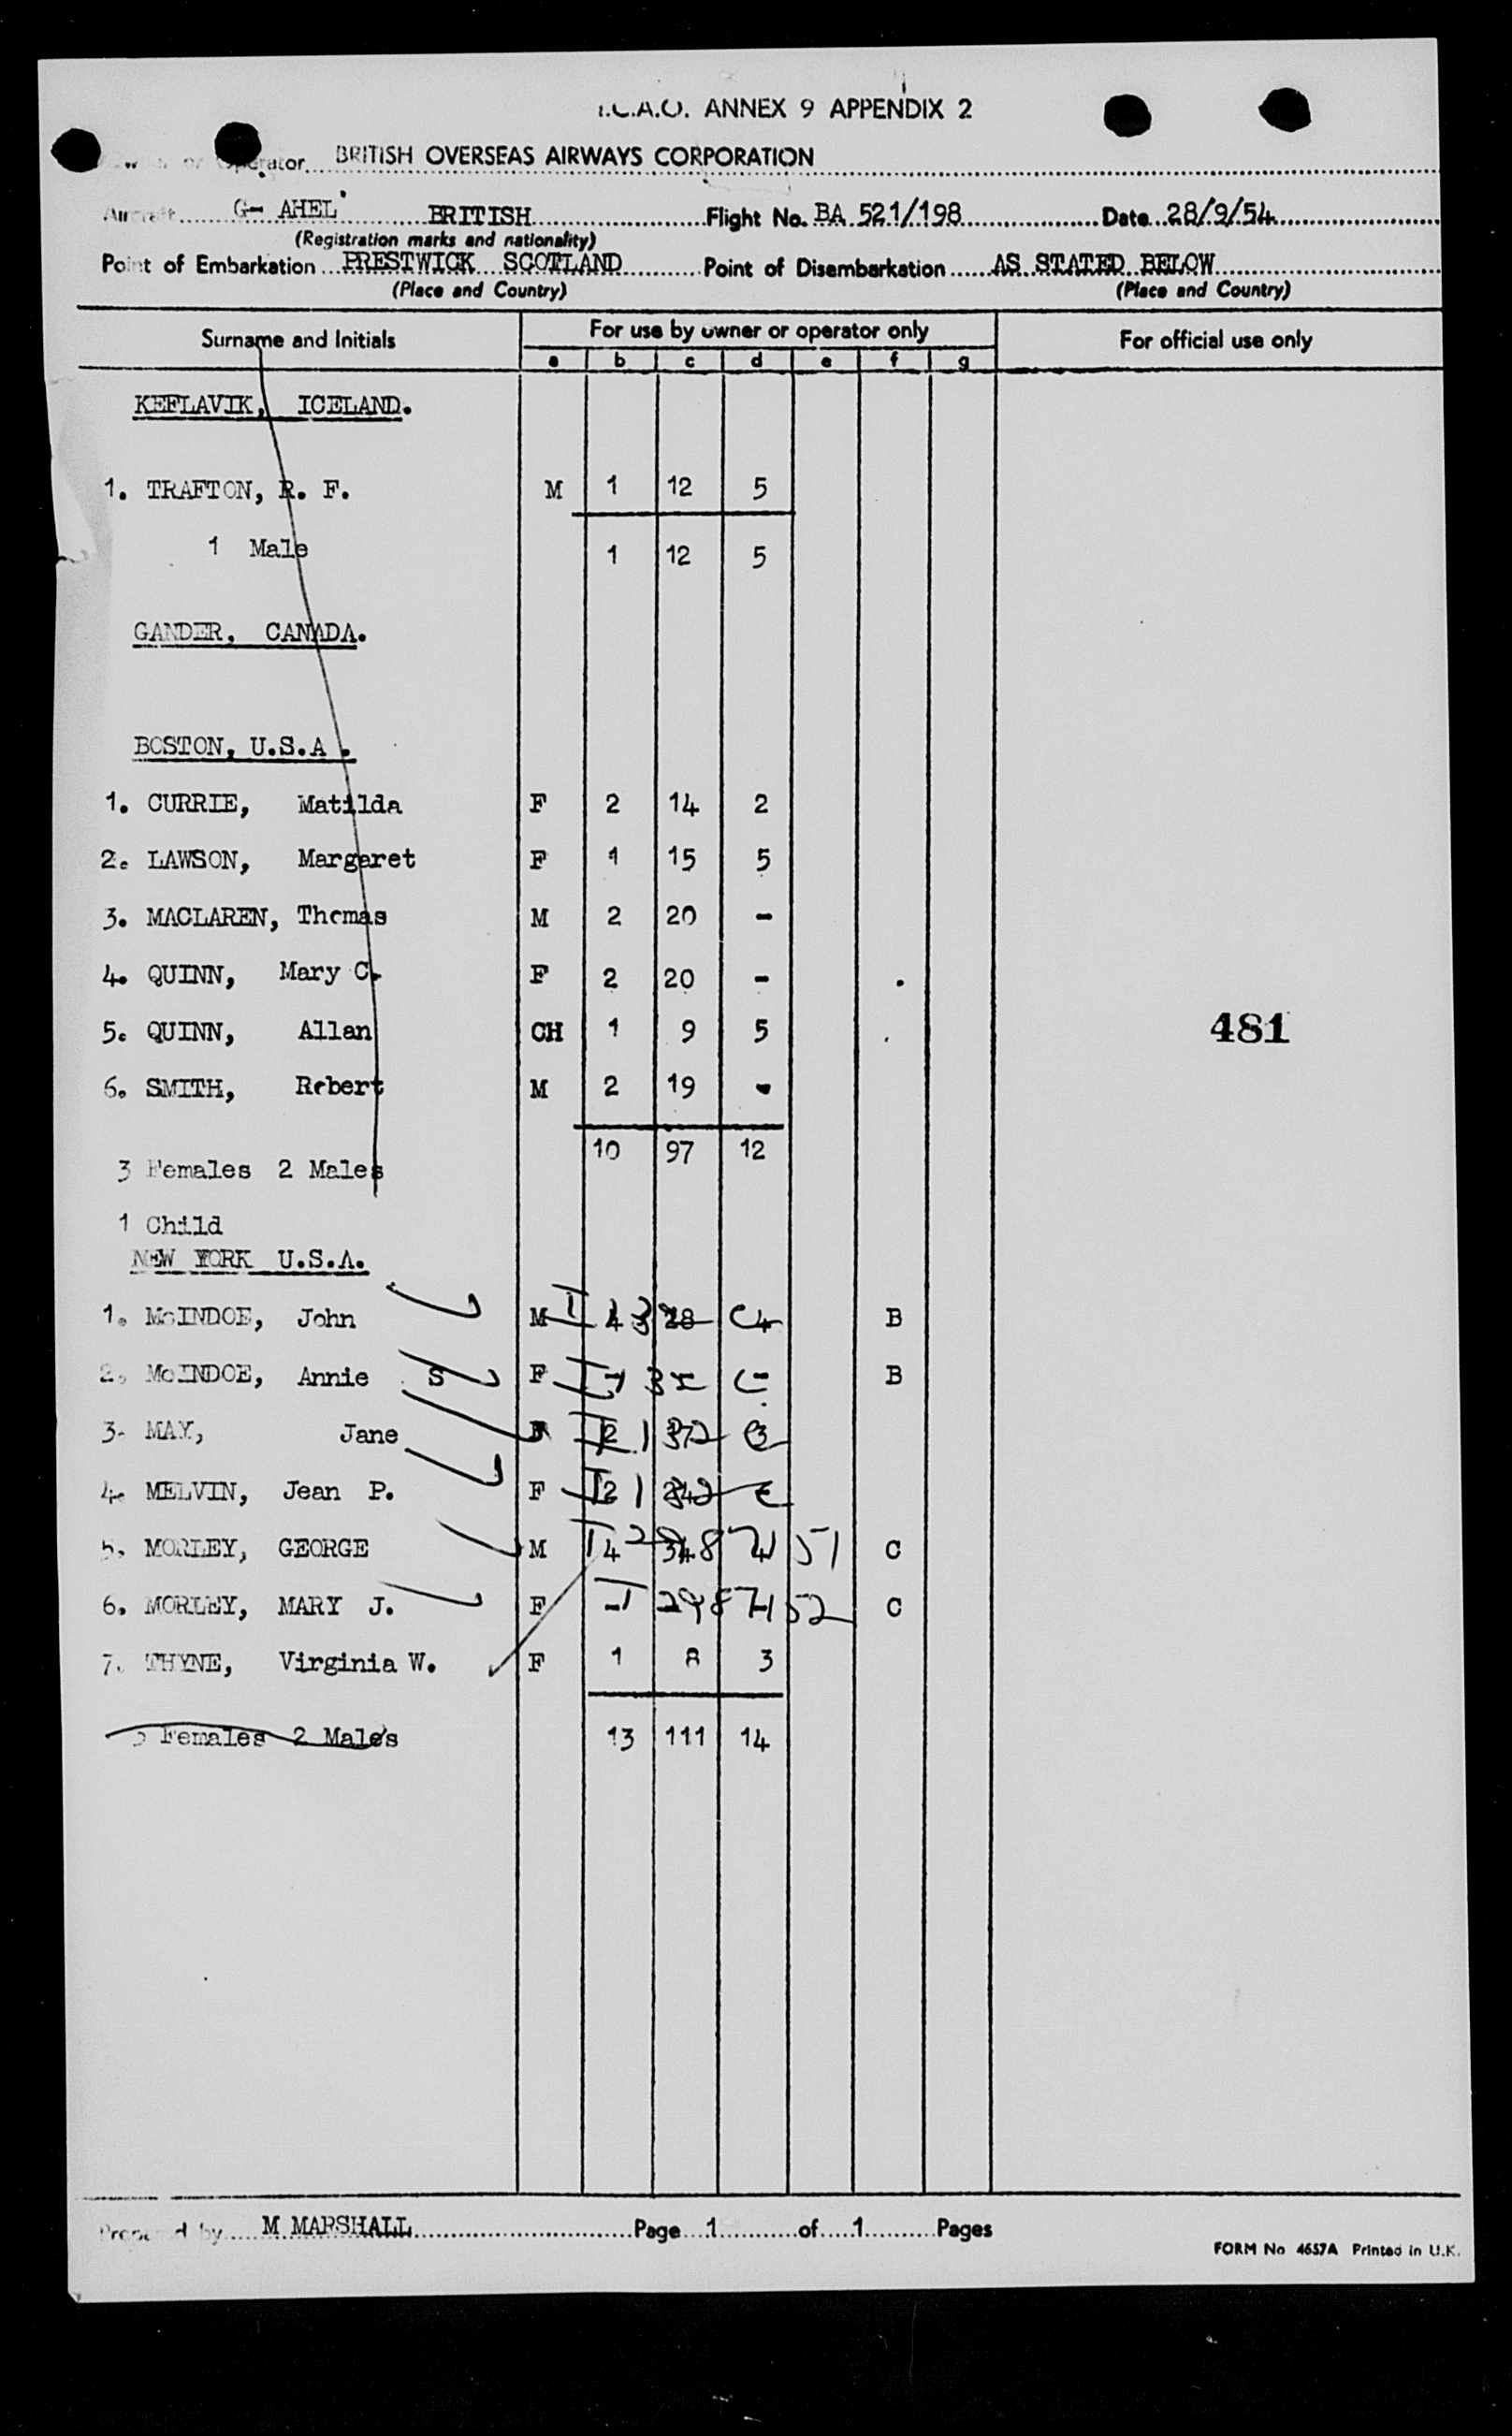 I.C.A.O. ANNEX 9 APPENDIX 2
Operator BRITISH OVERSEAS AIRWAYS CORPORATION
Aircraft G- AHEL BRITISH Flight No. BA 521/198 Date 28/9/54
(Registration marks and nationality)
Point of Embarkation PRESTWICK SCOTLAND Point of Disembarkation AS STATED BELOW
(Place and Country) (Place and Country)
Surname and Initials For use by owner or operator only For official use only
a b c d e f g
KEFLAVIK, ICELAND.
1. TRAFTON, R. F. M 1 12 5
1 Male 1 12 5
GANDER, CANADA.
BOSTON, U.S.A.
1. CURRIE, Matilda F 2 14 2
2. LAWSON, Margaret F 1 15 5
3. MACLAREN, Thomas M 2 20 -
4. QUINN, Mary C. F 2 20 -
5. QUINN, Allan CH 1 9 5
481
6. SMITH, Robert M 2 19 -
10 97 12
3 Females 2 Males
1 Child
NEW YORK U.S.A.
1. McINDOE, John M 28 4 B
2. McINDOE, Annie S F B
3. MAY, Jane F 2 3
4. MELVIN, Jean P. F 2
5. MORLEY, GEORGE M 4 34 51 C
6. MORLEY, MARY J. F - 52 C
7. THYNE, Virginia W. F 1 8 3
5 Females 2 Males 13 111 14
Prepared by M MARSHALL Page 1 of 1 Pages
FORM No 4657A Printed in U.K.